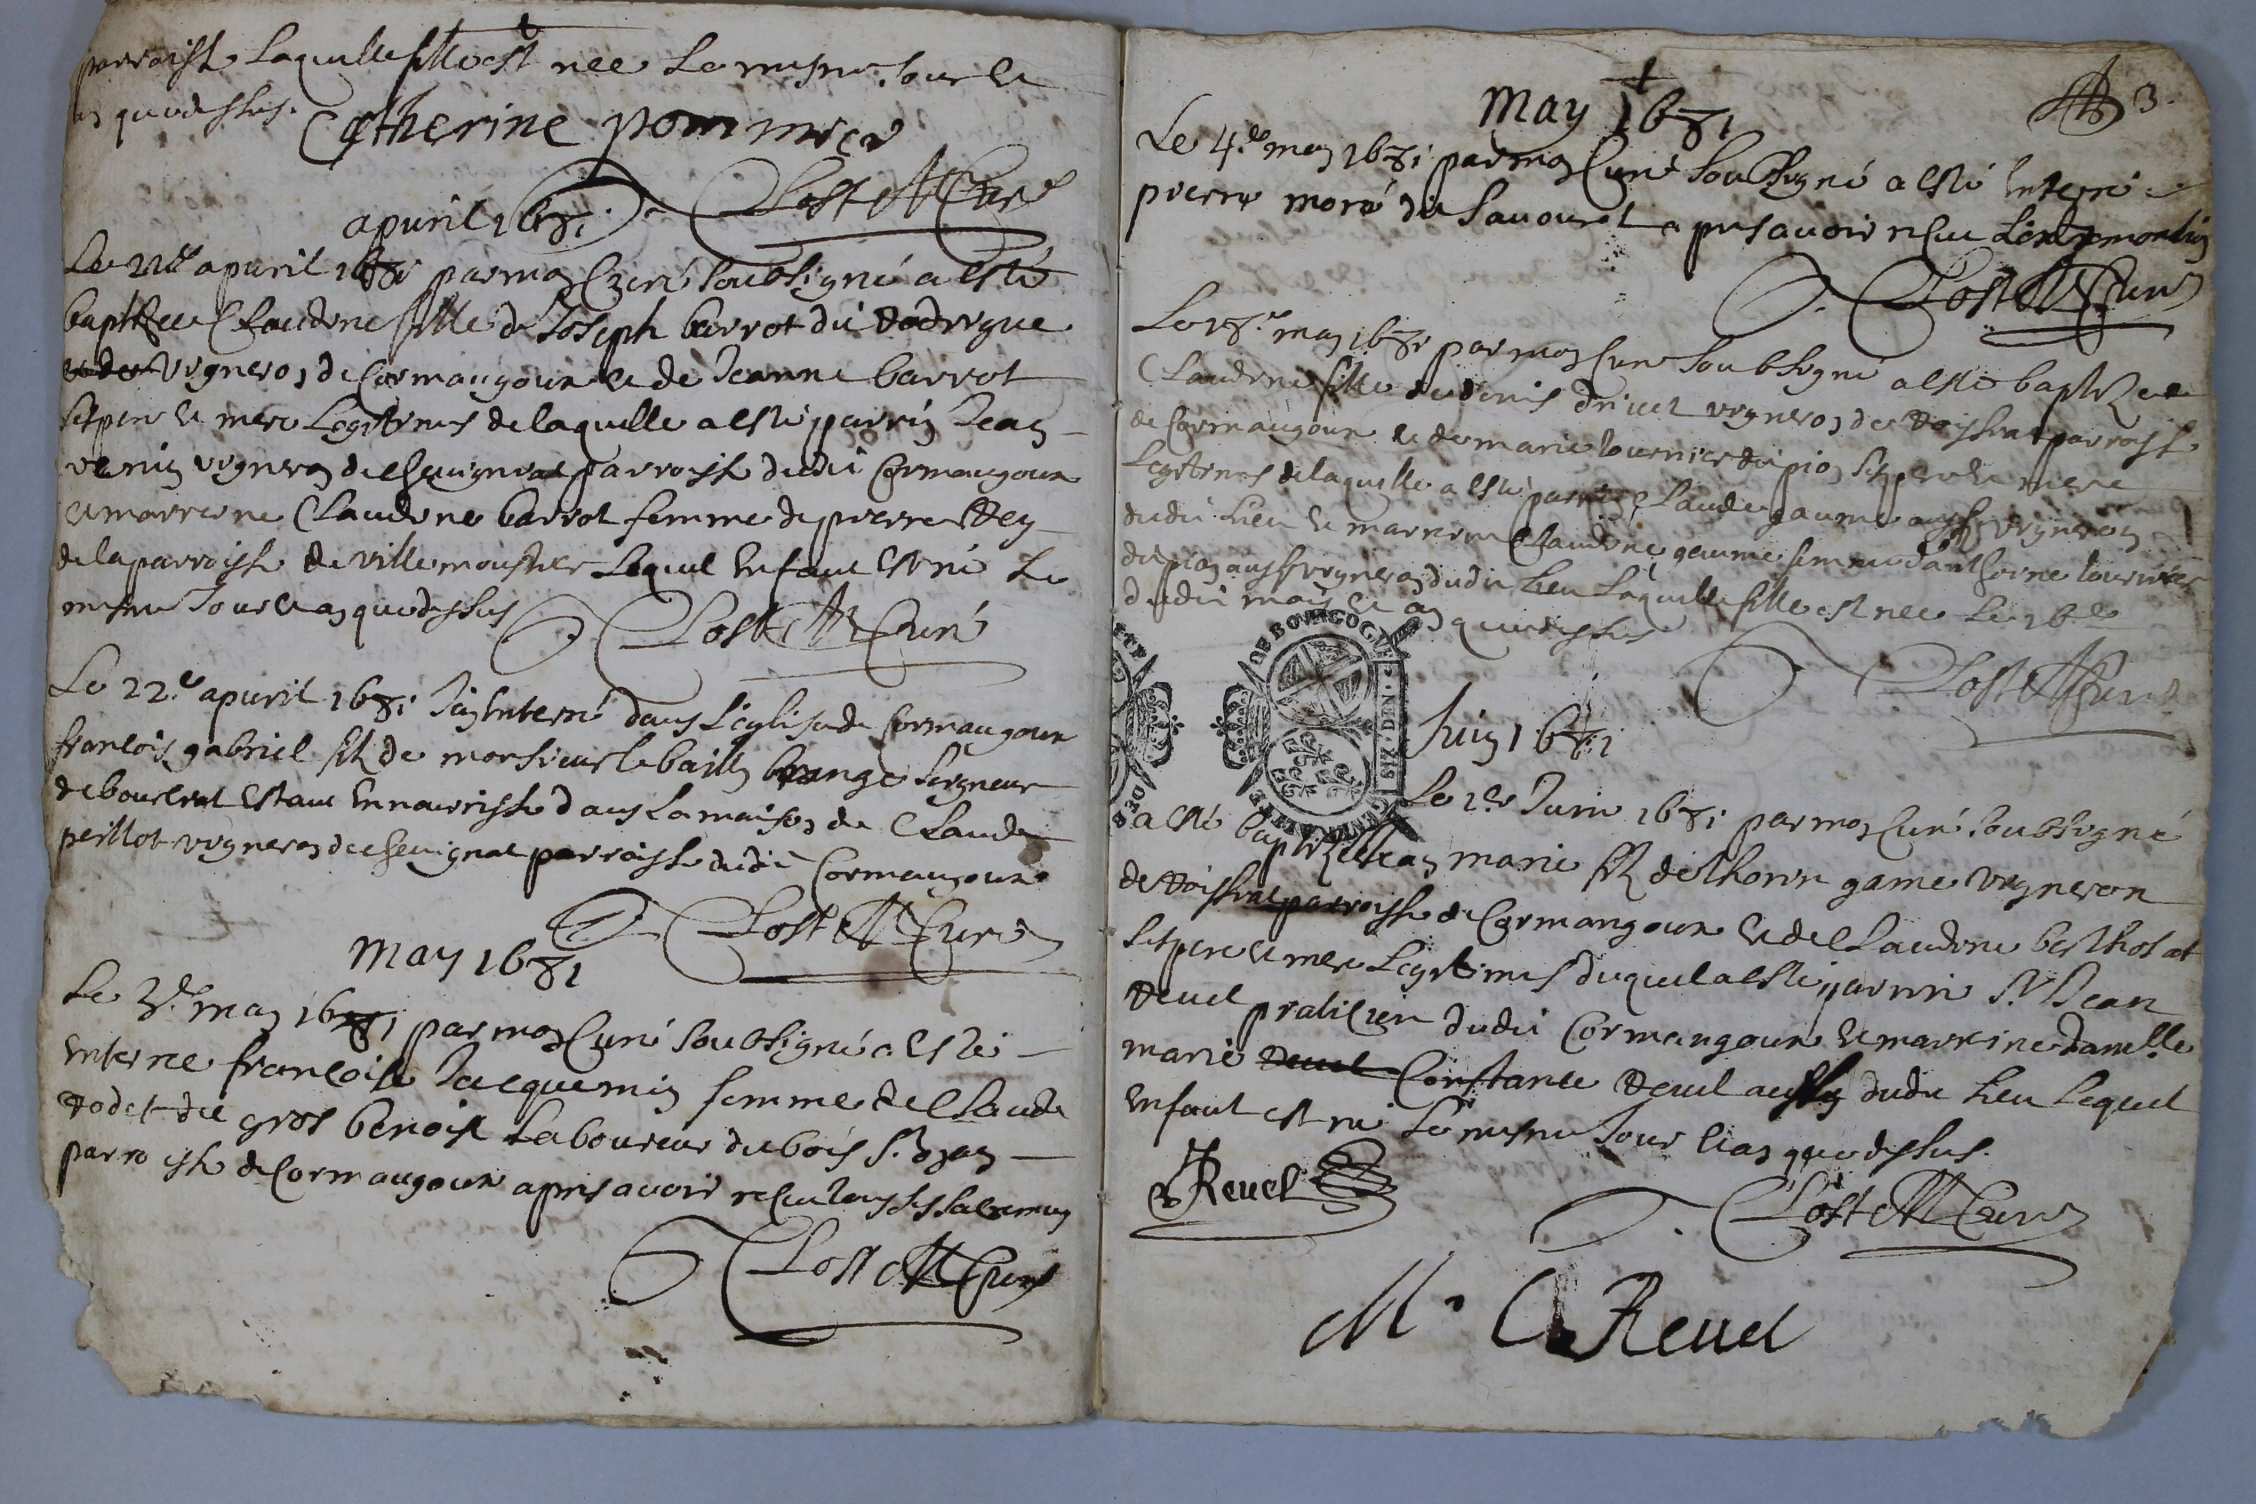 parroisse laquelle fille est nee le mesme jour et
an que dessus.
Catherine pommier
Lost Curé
apuril 1681
Le apuril 1681 par moy Curé soubsigné a esté
baptizee Claudine fille de Joseph barrot dit
vigneron de Cormangoux et de Jeanne barrot
ses pere et mere legitimes de laquelle a esté parrin Jean
vigneron de Chevignat parroisse dudit Cormangoux
et marreine Claudine barrot femme de pierre
de la parroisse de villemoustier lequel enfant est né le
mesme jour et an que dessus
Lost Curé
Le 22e apuril 1681 j'ay enterré dans l'eglise de Cormangoux
francois gabriel filz de monsieur le bailly seigneur
de estant en nourrisse dans la maison de Claude
perillot vigneron de Chevignat parroisse dudit Cormangoux
Lost Curé
may 1681
Le 3e may 1681 par moy Curé soubsigné a esté
enterree francoise Jacquemin femme de Claude
dodet dit gros benoist laboureur du bois St Jean
parroisse de Cormangoux apres avoir receu tous ses sacremens
Lost Curé
3.
may 1681
Le 4e may 1681 par moy Curé soubsigné a esté enterré
pierre moré du Sauouret apres avoir receu
Lost Curé
Le may 1681 par moy Curé soubsigné a esté baptizee
Claudine fille de denis vigneron de parroisse
de Cormangoux et de marie tournier dit pion ses pere et mere
legitimes de laquelle a esté parrin Claude gaume aussy vigneron
dudit lieu et marreine Claudine gaume femme d'anthoine tournier
dit pion aussy vigneron dudit lieu laquelle fille est nee le 16e
dudit mois et an que dessus
Lost Curé
DE BOVRGOGNE
SIX DEN
Juin 1681
Le 1er Juin 1681 par moy Curé soubsigné
a esté baptizé Jean marie filz de game vigneron
de parroisse de Cormangoux et de Claudine bertholat
ses pere et mere legitimes duquel a esté parrin Sr Jean
Revel praticien dudit Cormangoux et marreine damelle
marie Constance Revel aussy dudit lieu lequel
enfant est né le mesme jour et an que dessus.
Revel
Lost Curé
M. C Revel